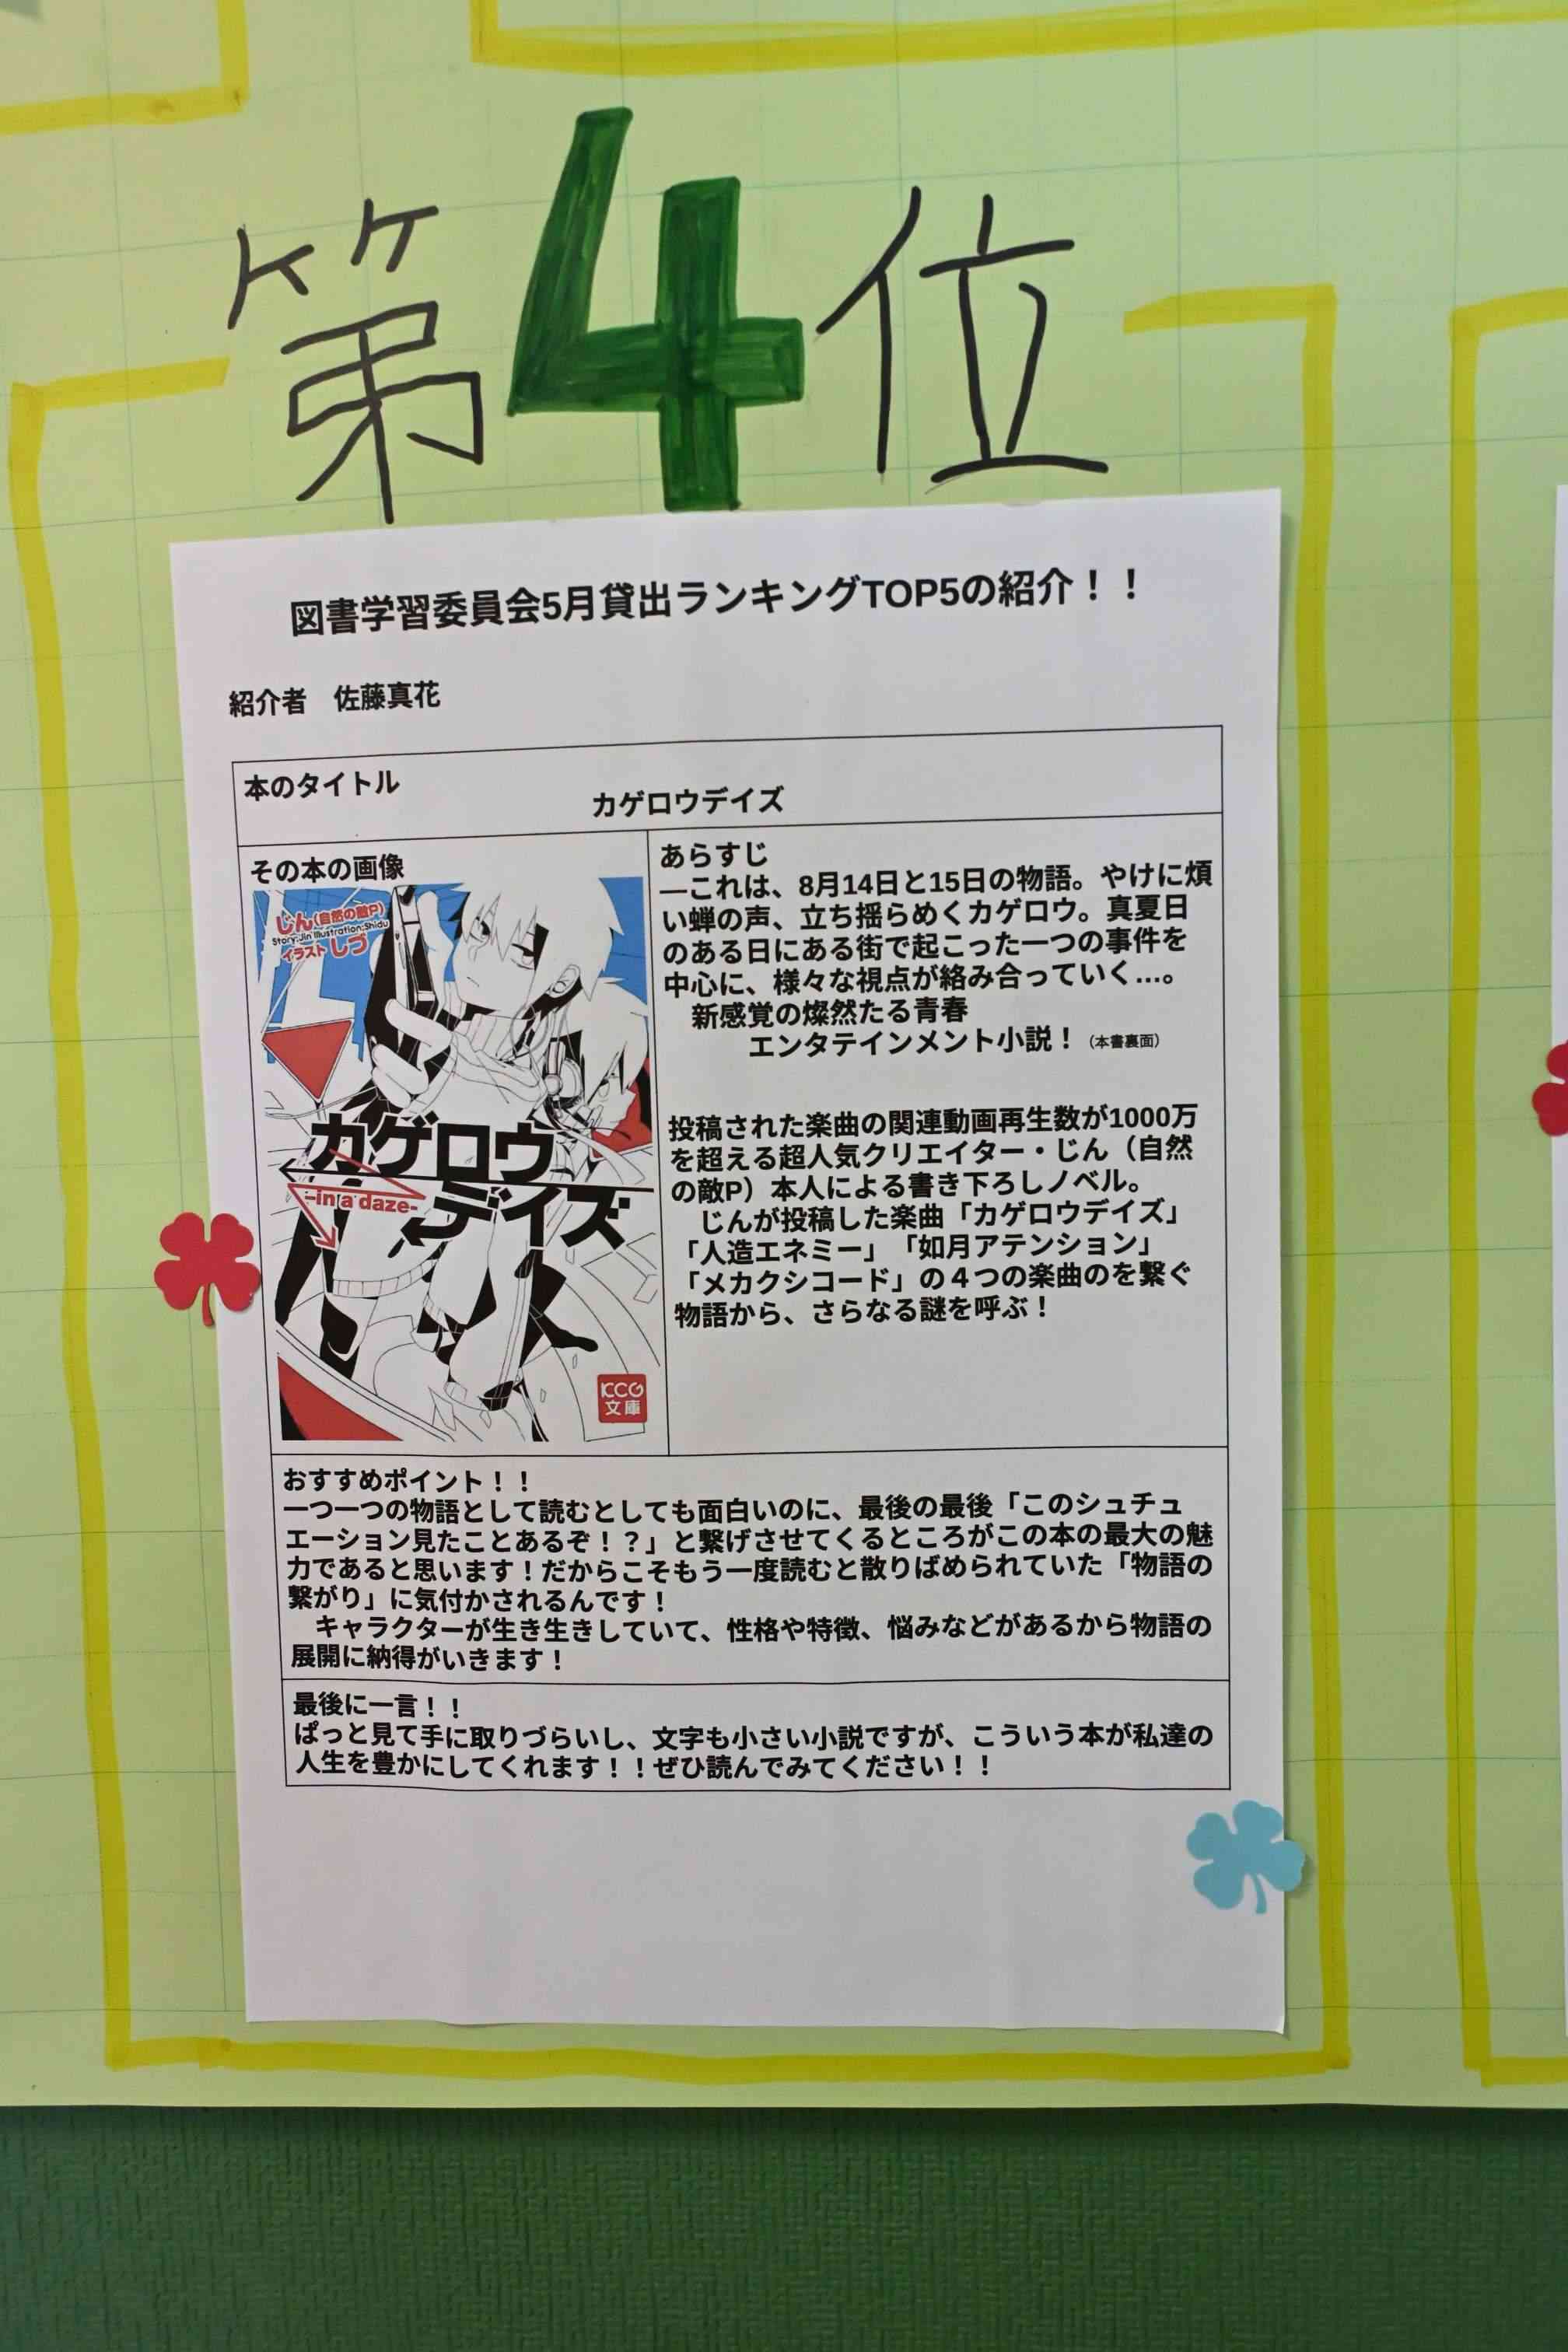 第4位
図書学習委員会5月貸出ランキングTOP5の紹介！！
紹介者　佐藤真花
本のタイトル
カゲロウデイズ
その本の画像
じん(自然の敵P)
Story:Jin Illustration:Shidu
イラスト しづ
カゲロウ
-in a daze-
デイズ
KCG
文庫
あらすじ
―これは、8月14日と15日の物語。やけに煩
い蝉の声、立ち揺らめくカゲロウ。真夏日
のある日にある街で起こった一つの事件を
中心に、様々な視点が絡み合っていく…。
新感覚の燦然たる青春
エンタテインメント小説！（本書裏面）
投稿された楽曲の関連動画再生数が1000万
を超える超人気クリエイター・じん（自然
の敵P）本人による書き下ろしノベル。
じんが投稿した楽曲「カゲロウデイズ」
「人造エネミー」「如月アテンション」
「メカクシコード」の４つの楽曲のを繋ぐ
物語から、さらなる謎を呼ぶ！
おすすめポイント！！
一つ一つの物語として読むとしても面白いのに、最後の最後「このシュチュ
エーション見たことあるぞ！？」と繋げさせてくるところがこの本の最大の魅
力であると思います！だからこそもう一度読むと散りばめられていた「物語の
繋がり」に気付かされるんです！
キャラクターが生き生きしていて、性格や特徴、悩みなどがあるから物語の
展開に納得がいきます！
最後に一言！！
ぱっと見て手に取りづらいし、文字も小さい小説ですが、こういう本が私達の
人生を豊かにしてくれます！！ぜひ読んでみてください！！